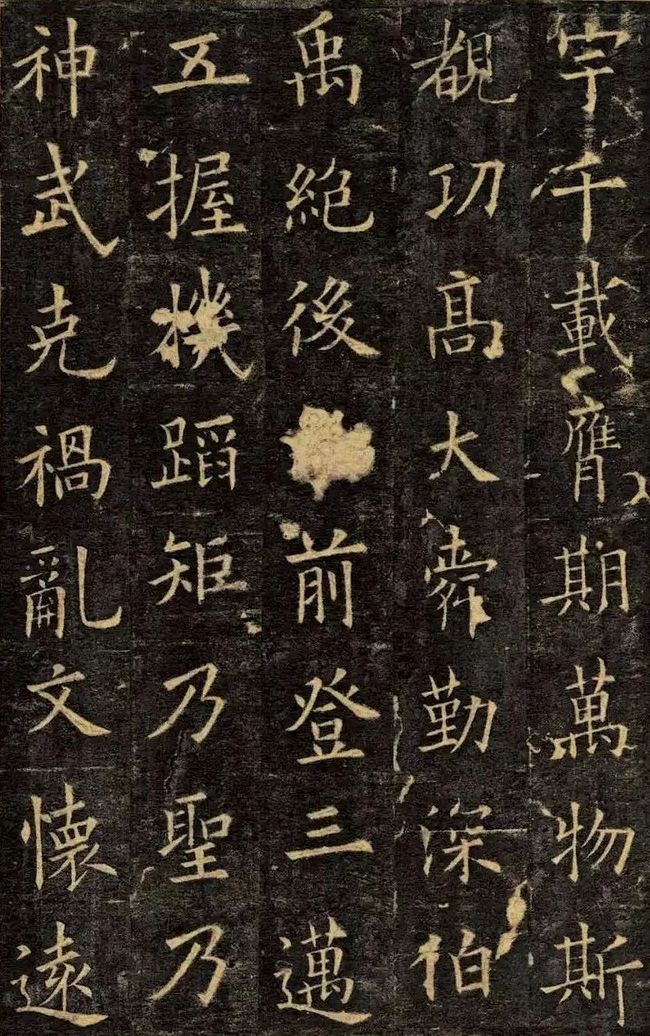 宇千載膺期萬物斯
覩功髙大舜勤深伯
禹絶後前登三邁
五握機蹈矩乃聖乃
神武克禍亂文懷遠